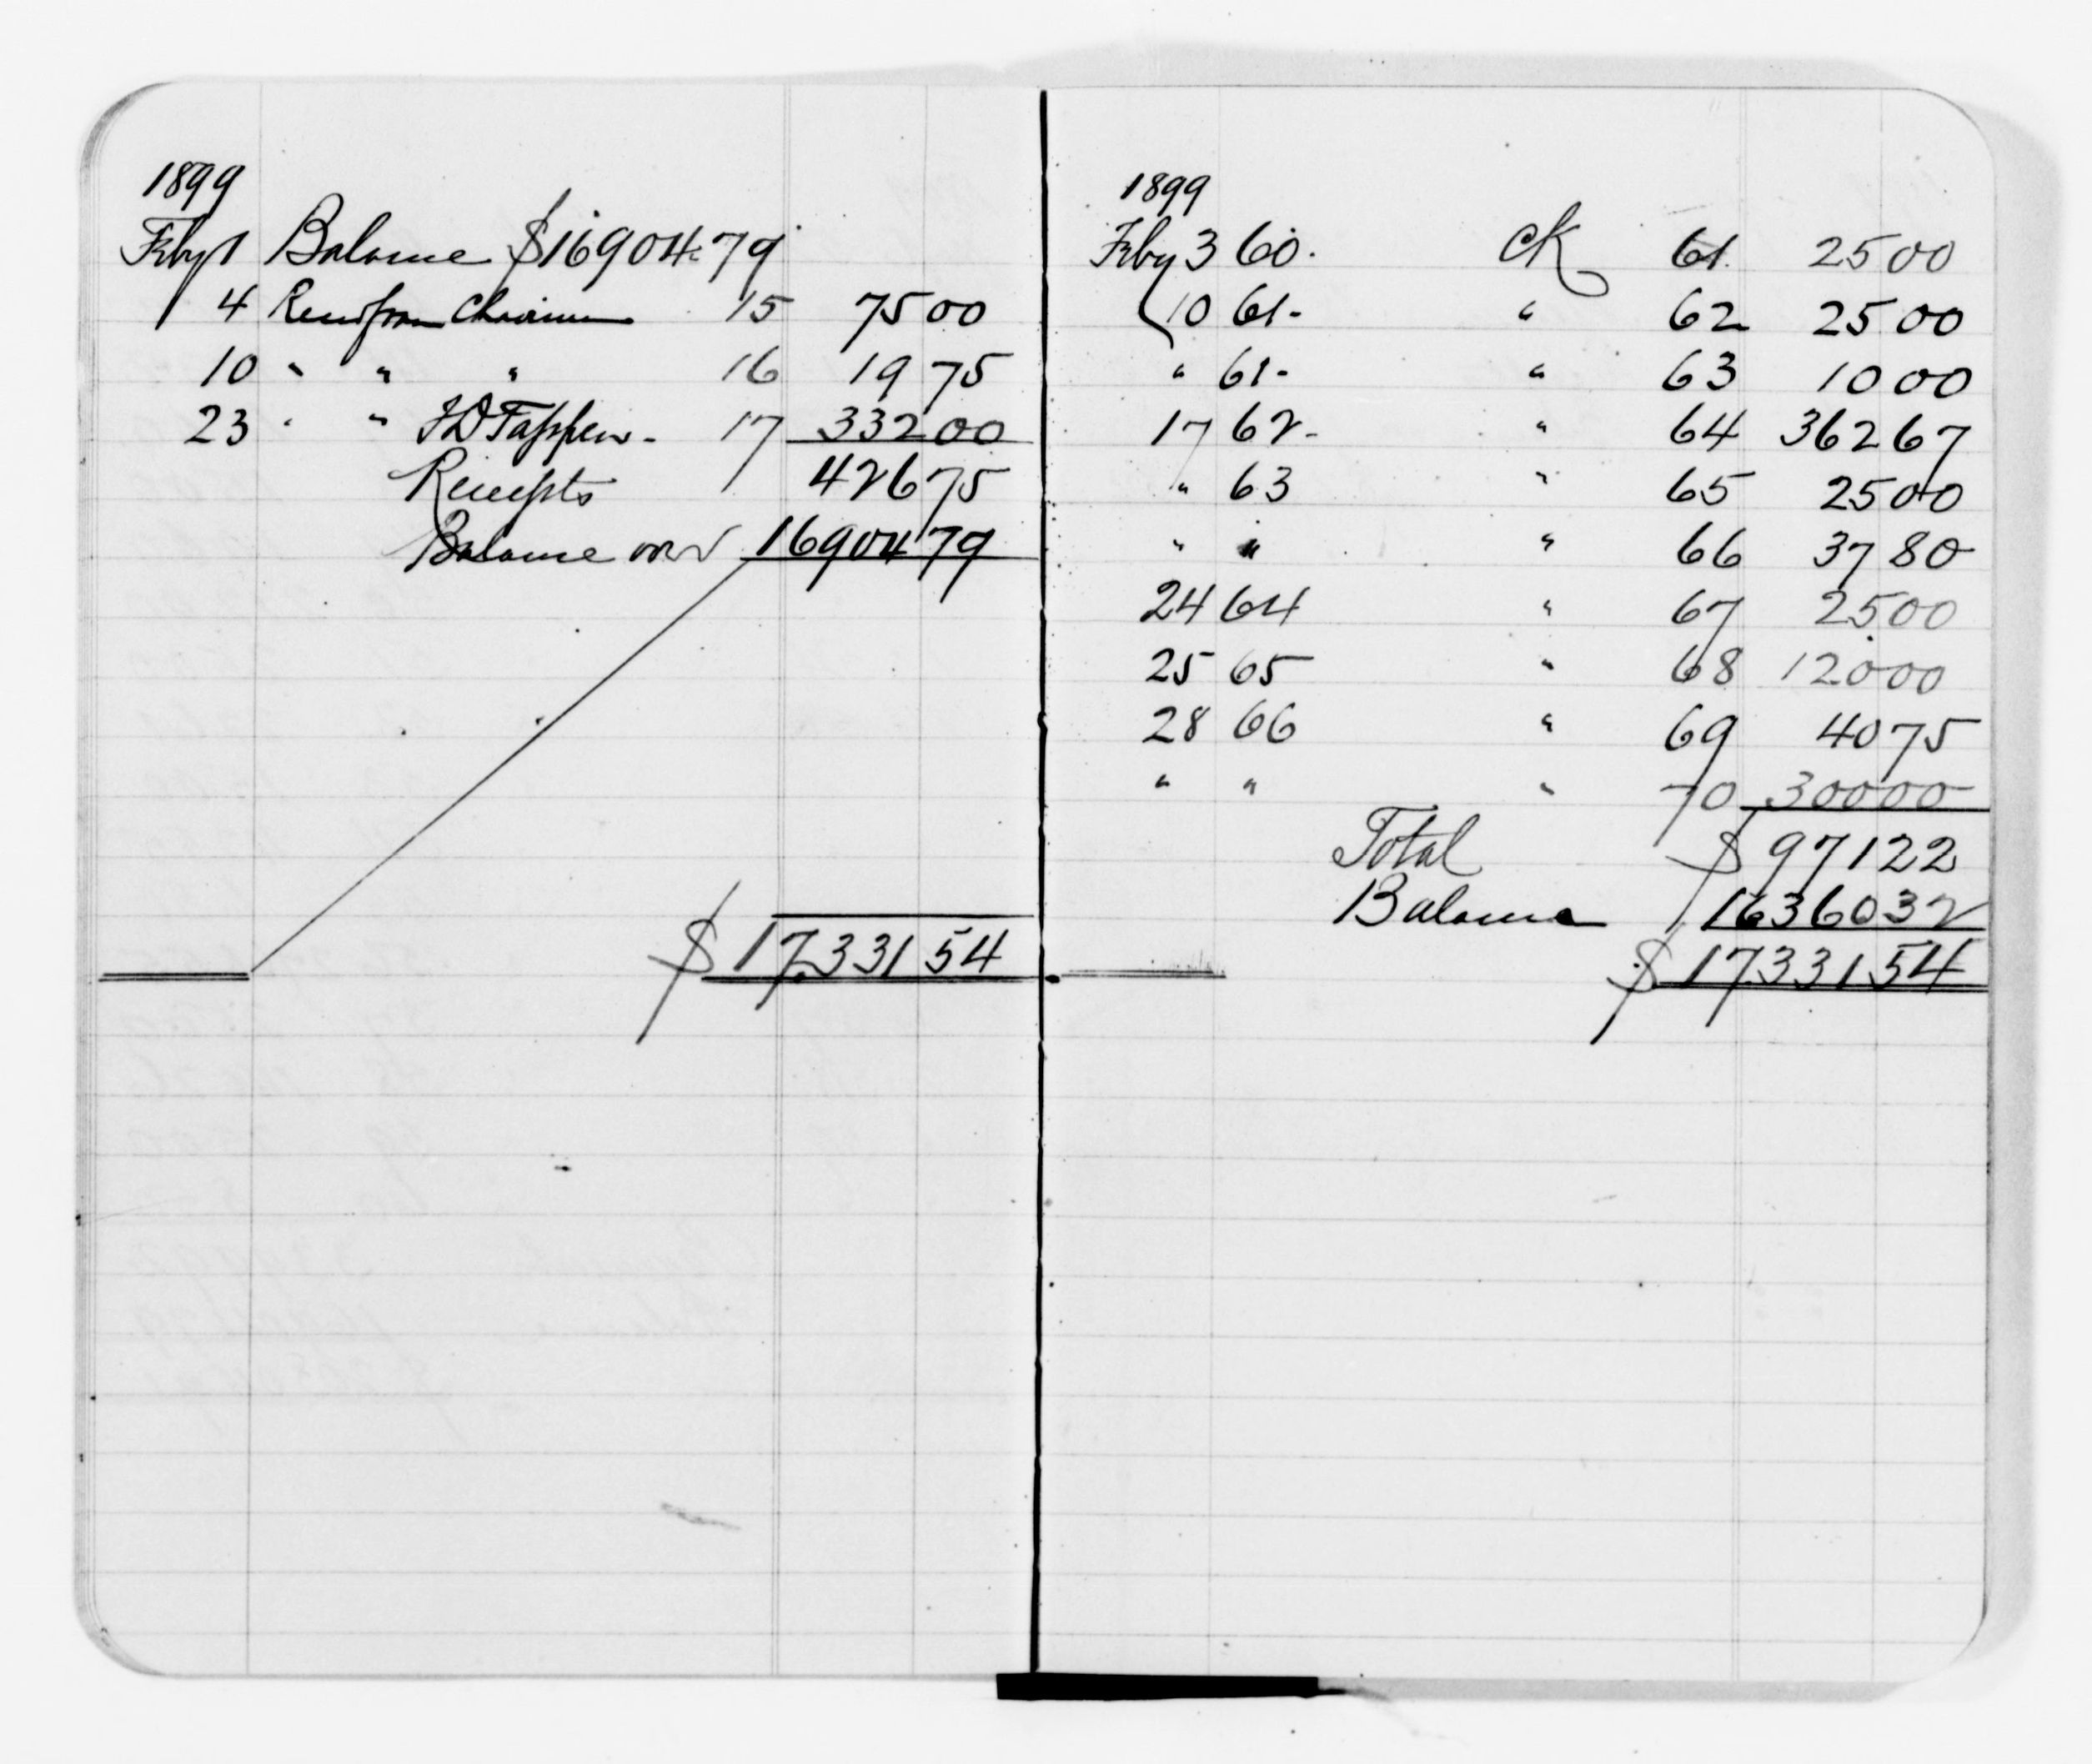 1899
Feby 1 Balance $16904.79
4 Recd from Chairman 15 75 00
10 " " " 16 19 75
23 " " F D Tappen - 17 332 00
Receipts 426 75
Balance 16904 79
$ 17331 54
1899
Feby 3 60. CK 61. 25 00
10 61- " 62 25 00
" 61- " 63 10 00
17 62- " 64 362 67
" 63 " 65 25 00
" " " 66 37 80
24 64 " 67 25 00
25 65 " 68 120 00
28 66 " 69 40 75
" " " 70 300 00
Total $ 971 22
Balance 16360 32
$ 17331 54